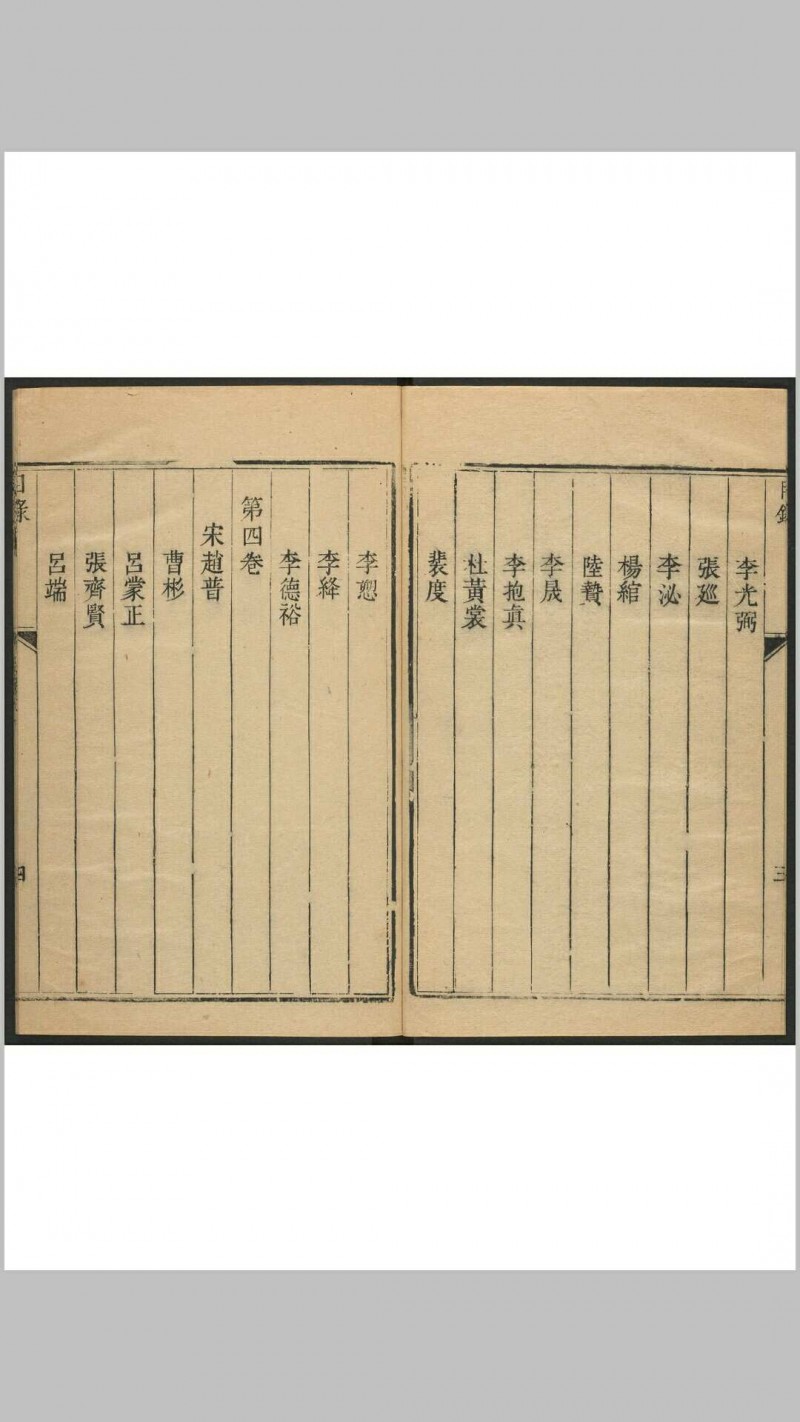 目錄
三
李光弼
張廵
李泌
楊綰
陸贄
李晟
李抱真
杜黃裳
裴度
李愬
李絳
李德裕
第四卷
宋趙普
曹彬
呂蒙正
張齊賢
呂端
目錄
四